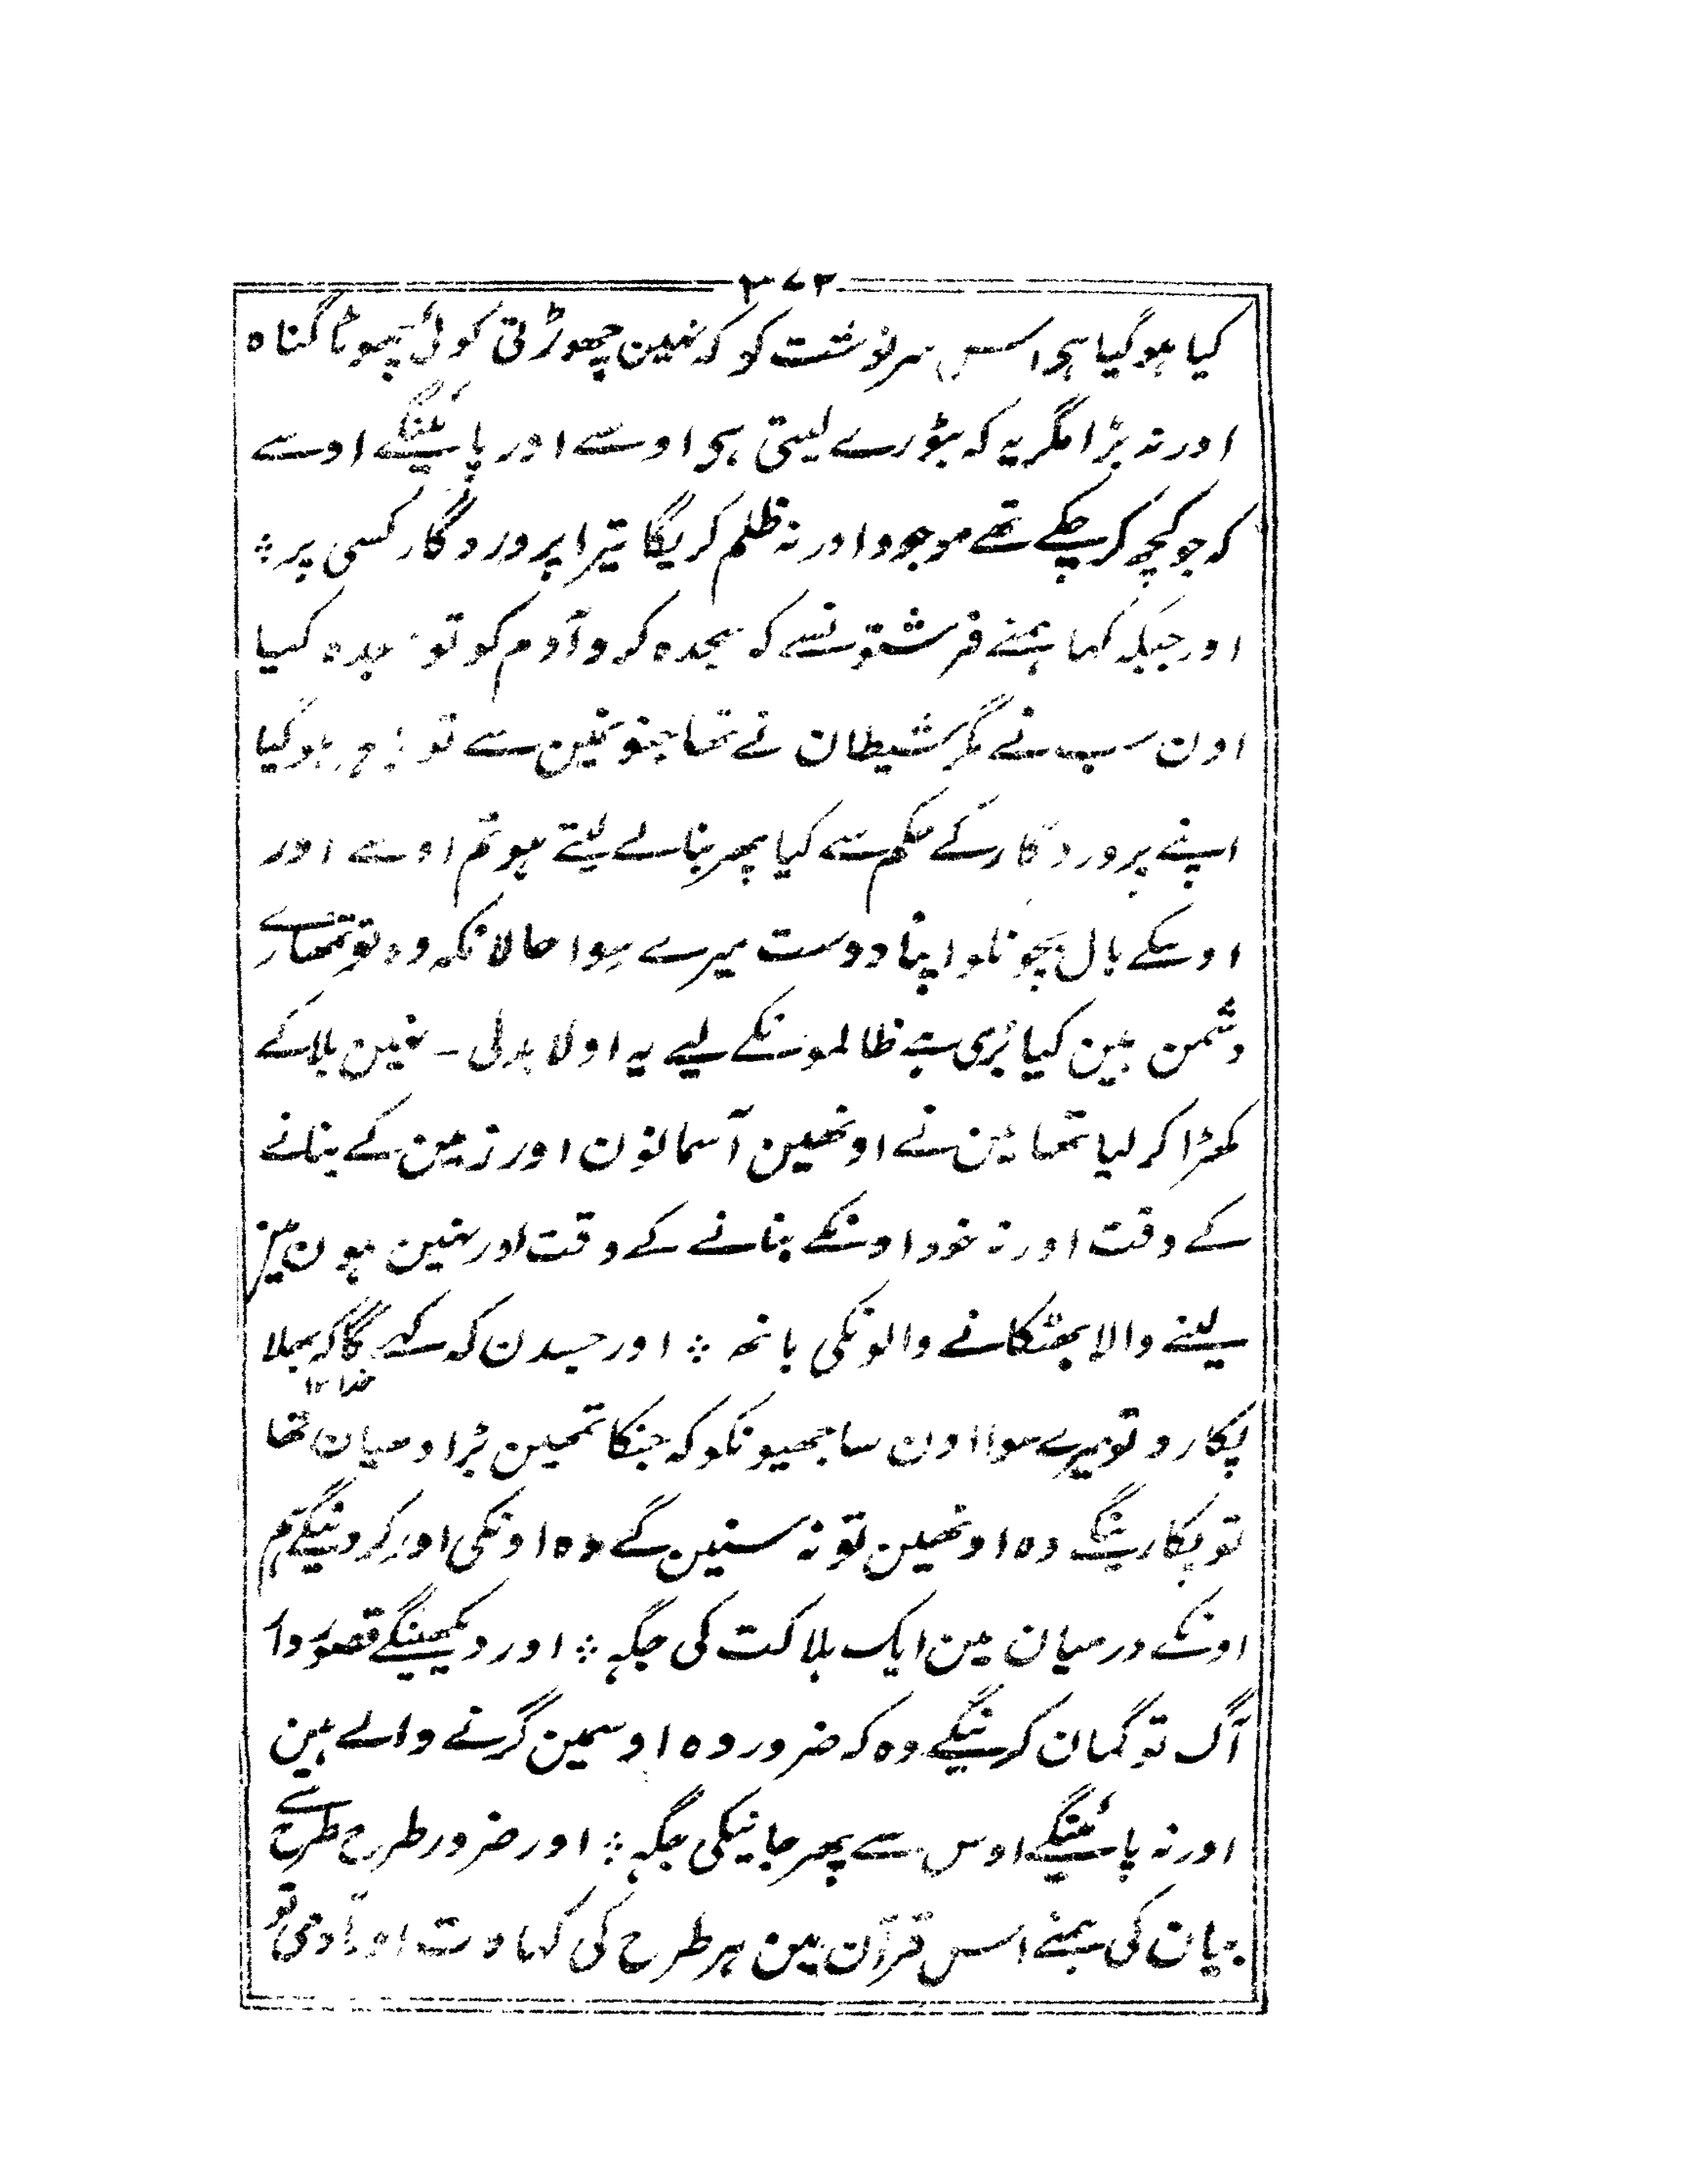 ۳۷۲
کیا ہوگیا ہی اس سرنوشت کو کہ نہین چھوڑتی کوئی چھوٹا گناہ
اور نہ بڑا مگر یہ کہ بٹورے لیتی ہی اوسے اور پائینگے اوسے
کہ جو کچھ کرچکے تھے موجود اور نہ ظلم کریگا تیرا پروردگار کسی پر ⁘
اور جبکہ کہا ہمنے فرشتونسے کہ سجدہ کرو آدم کو تو سجدہ کیا
اون سب نے مگر شیطان نے تھا جنونمین سے تو باہر ہوگیا
اپنے پروردگار کے حکم سے کیا پھر بنالے لیتے ہو تم اوسے اور
اوسکے بال بچونکو اپنا دوست میرے سوا حالانکہ وہ تو تمھارے
دشمن ہین کیا بری ہے ظالمونکے لیے یہ اولا بدلی ۔ نہین بلاکے
کھڑا کرلیا تھا مین نے اونھین آسمانون اور زمین کے بنانے
کے وقت اور نہ خود اونکے بنانے کے وقت اور نہین ہون مین
لینے والا بھٹکانے والونکی بانھ ⁘ اور جسدن کہ کہے گا کہ بھلا
خدا ۱۲
پکارو تو میرے سوا اون ساجھیونکو کہ جنکا تمھین بڑا دھیان تھا
تو پکارینگے وہ اونھین تو نہ سنین گے وہ اونکی اور کردینگے ہم
اونکے درمیان مین ایک ہلاکت کی جگہ ⁘ اور دیکھینگے قصوروار
آگ تو گمان کرینگے وہ کہ ضرور وہ اوسمین گرنے والے ہین
اور نہ پائینگے اوس سے پھر جانیکی جگہ ⁘ اور ضرور طرح طرح سے
بیان کی ہمنے اس قرآن مین ہر طرح کی کہاوت اور آدمی تو